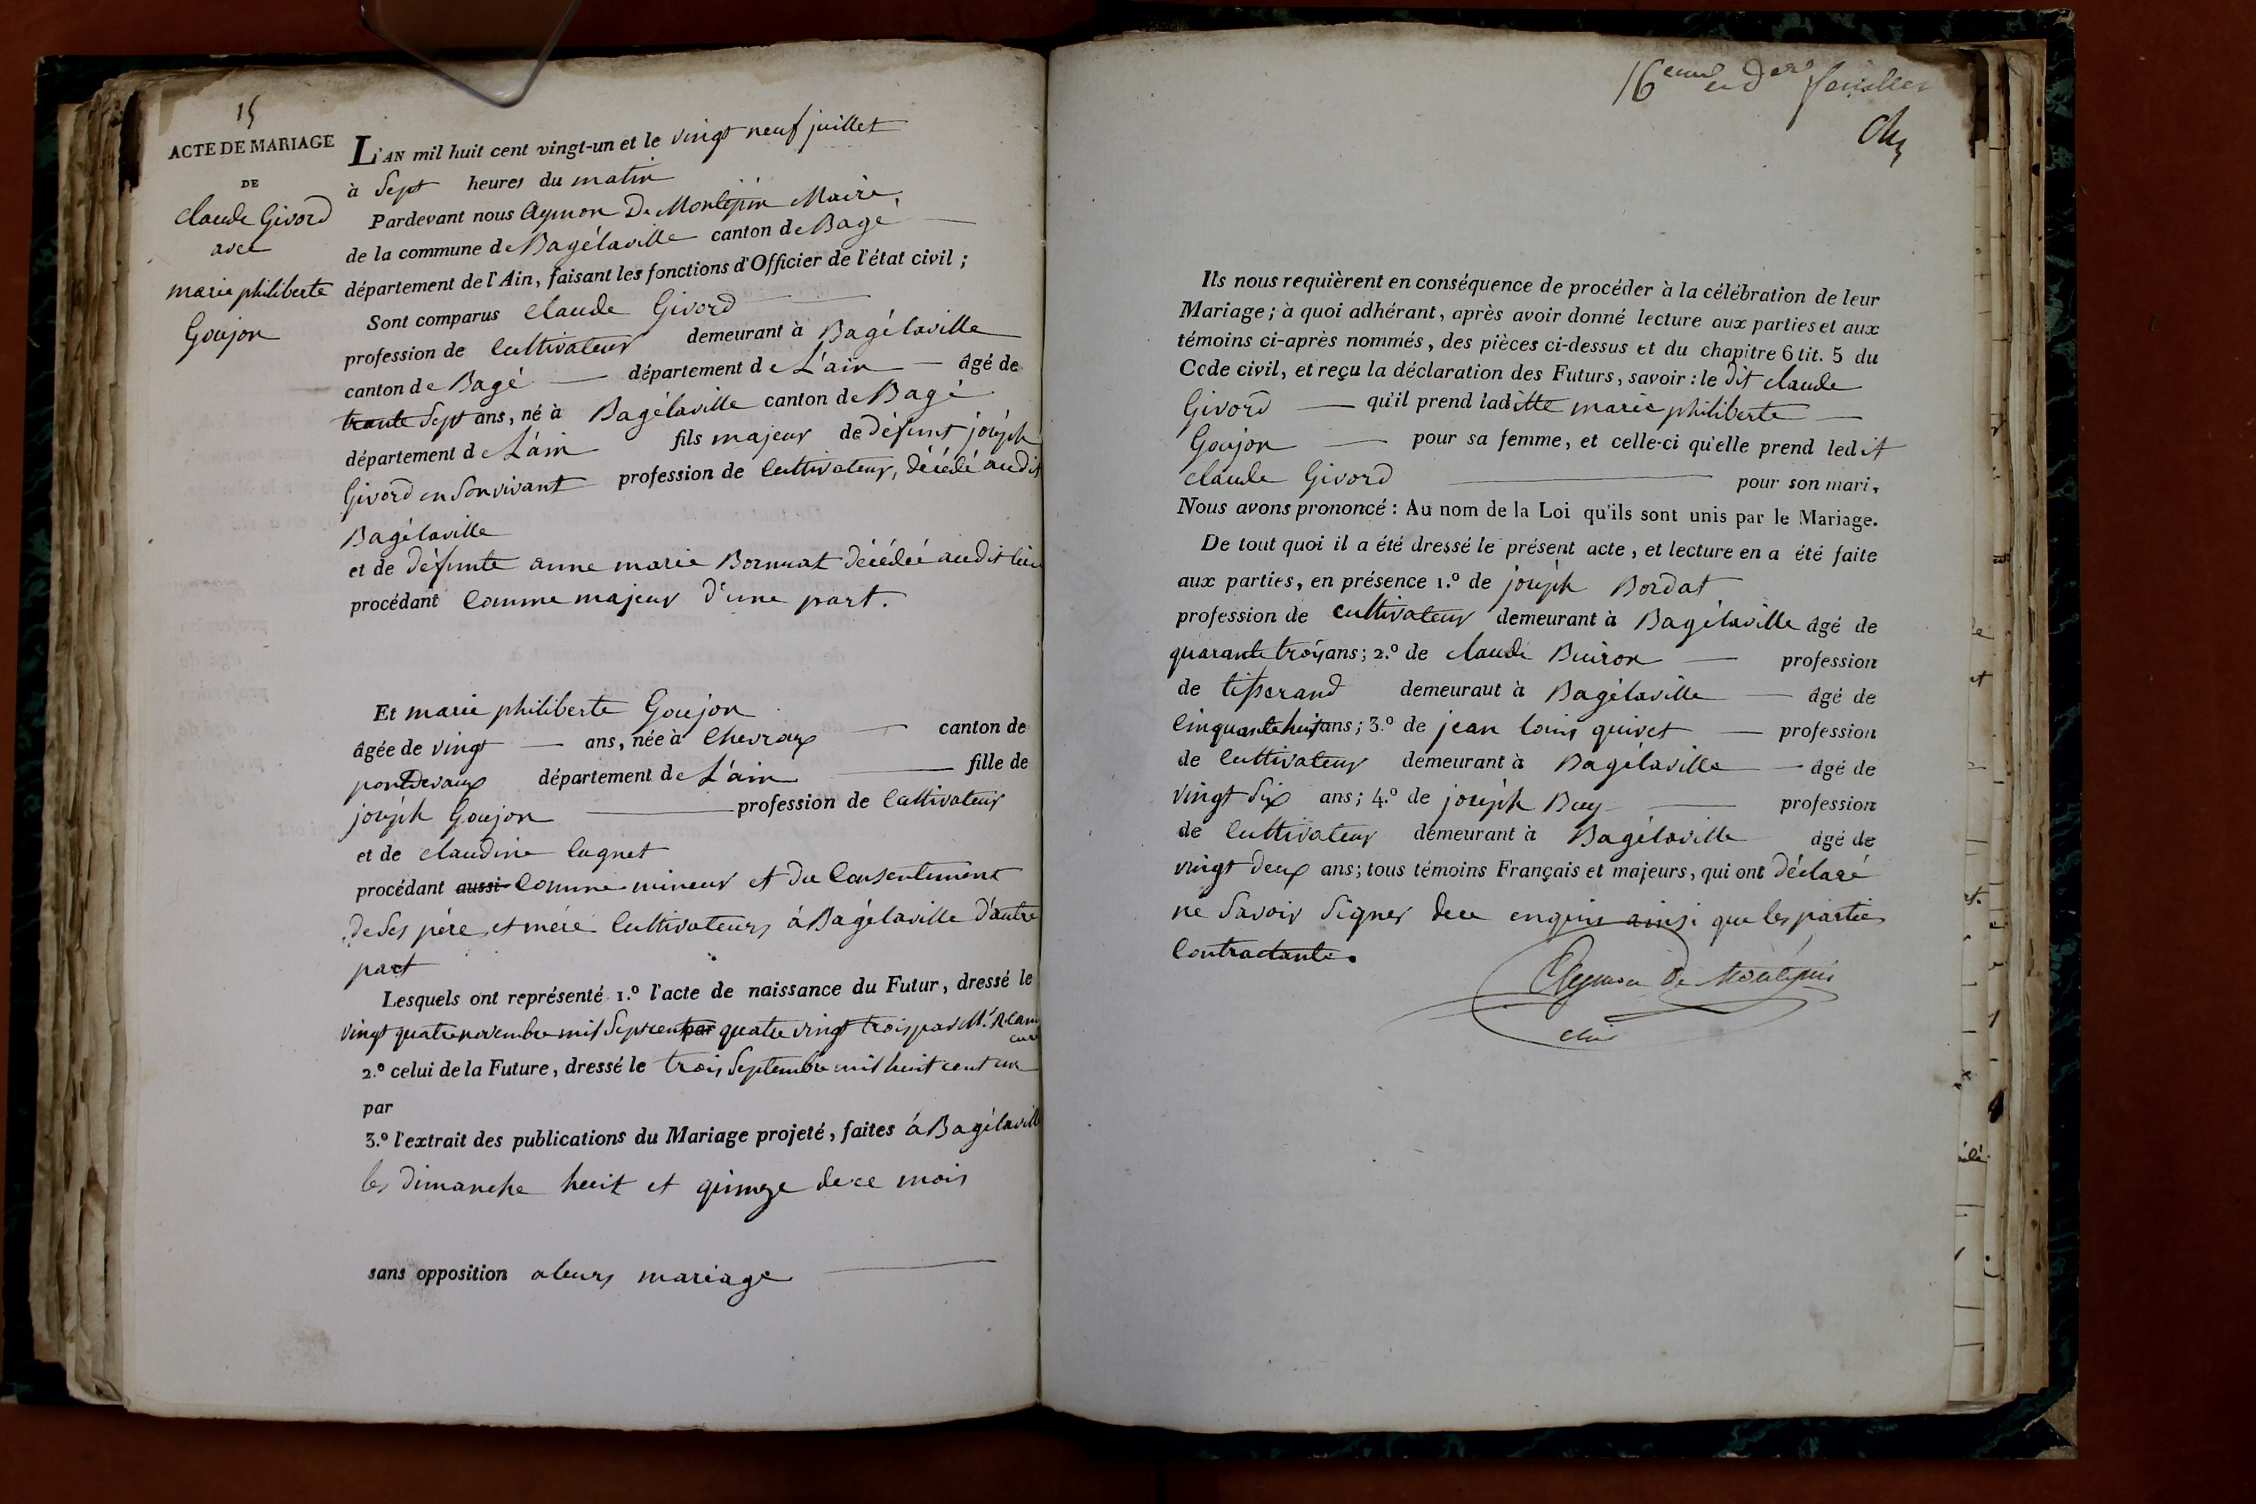 15
ACTE DE MARIAGE
DE
Claude Givord
avec
marie philiberte
Goujon
L'AN mil huit cent vingt-un et le vingt neuf juillet
à Sept heures du matin
Pardevant nous Aymon De Montépin Maire
de la commune de Bagélaville canton de Bagé
département de l'Ain, faisant les fonctions d'Officier de l'état civil ;
Sont comparus Claude Givord
profession de Cultivateur demeurant à Bagélaville
canton de Bagé département de L'ain âgé de
trante Sept ans, né à Bagélaville canton de Bagé
département de L'ain fils majeur de défunt joséph
Givord en Son vivant profession de Cultivateur, décédé audit
Bagélaville
et de défunte anne marie Bornuat décédée audit lieu
procédant Comme majeur d'une part.
Et marie philiberte Goujon
âgée de vingt ans, née à Chevroux canton de
pontdevaux département de L'ain fille de
joséph Goujon profession de Cultivateur
et de claudine Cagnet
procédant aussi Comme mineur et du Consentement
de Ses pére et mére Cultivateurs á Bagélaville d'autre
part
Lesquels ont représenté 1.º l'acte de naissance du Futur, dressé le
vingt quatre novembre mil Sept cent par quatre vingt trois par Mr.
curé
2.º celui de la Future, dressé le trois Septembre mil huit cent un
par
3.º l'extrait des publications du Mariage projeté, faites á Bagélaville
les dimanche huit et quinze de ce mois
sans opposition a leurs mariage
16eme et der feuillet
Ils nous requièrent en conséquence de procéder à la célébration de leur
Mariage ; à quoi adhérant, après avoir donné lecture aux parties et aux
témoins ci-après nommés, des pièces ci-dessus et du chapitre 6 tit. 5 du
Code civil, et reçu la déclaration des Futurs, savoir : le dit claude
Givord qu'il prend laditte marie philiberte
Goujon pour sa femme, et celle-ci qu'elle prend ledit
Claude Givord pour son mari,
Nous avons prononcé : Au nom de la Loi qu'ils sont unis par le Mariage.
De tout quoi il a été dressé le présent acte, et lecture en a été faite
aux parties, en présence 1.º de joséph Bordat
profession de cultivateur demeurant à Bagélaville âgé de
quarante trois ans ; 2.º de claude Buiron profession
de tisserand demeurant à Bagélaville âgé de
Cinquante huit ans ; 3.º de jean louis quivet profession
de Cultivateur demeurant à Bagélaville âgé de
vingt Six ans ; 4.º de joséph Buy profession
de Cultivateur demeurant à Bagélaville âgé de
vingt deux ans ; tous témoins Français et majeurs, qui ont déclaré
ne Savoir Signer de ce enquis ainsi que les parties
Contractante.
Aymon De Montépin